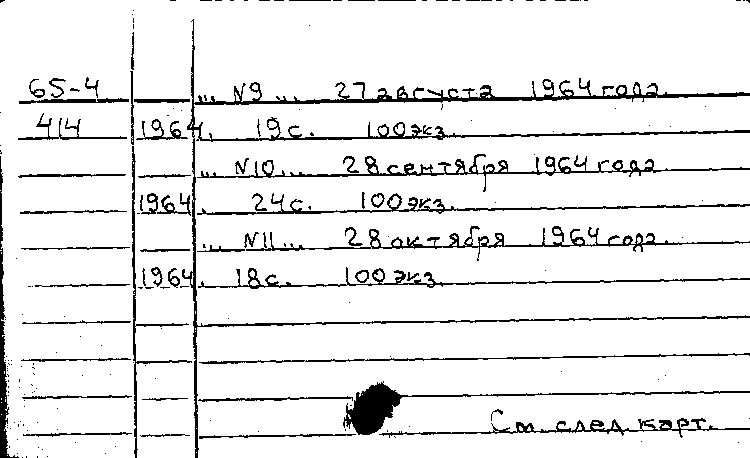 65-4 ... N9 ... 27 августа 1964 года.
414 1964. 19с. 100 экз.
... N10 ... 28 сентября 1964 года
1964. 24с. 100 экз.
... N11 ... 28 октября 1964 года.
1964. 18с. 100 экз.
См. след. карт.